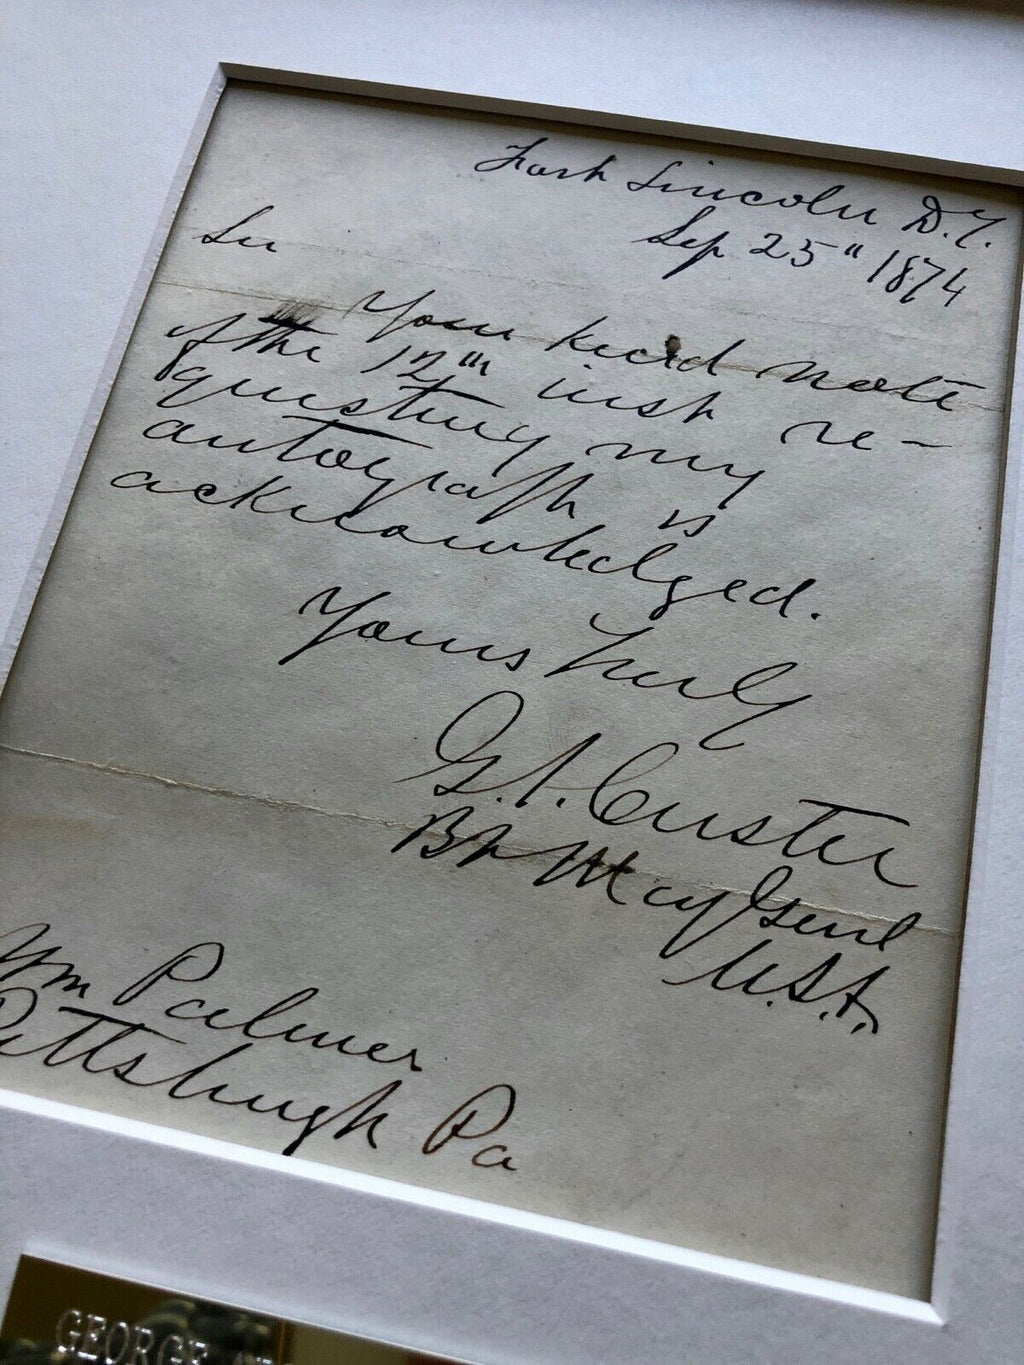 Fort Lincoln D.T.
Sep 25" 1874
Sir
Your kind note
of the 12th inst re-
questing my
autograph is
acknowledged.
Yours truly
G.A. Custer
Bt Maj Genl
U.S.A.
Wm Palmer
Pittsburgh Pa
GEORGE